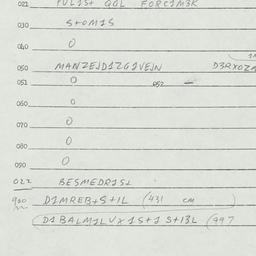 021 FUL1S+ QQL FORC1M3K
030 S+OM1S
040 0
050 MANZEJD1ZG1VEJN D3RXOZA
051 0 052 —
060 0
070 0
080 0
090 0
022 BESMEDR1S1
900 D1MREB+S+1L (431 CM )
(D1BALM1LVX1S+1S+13L (997